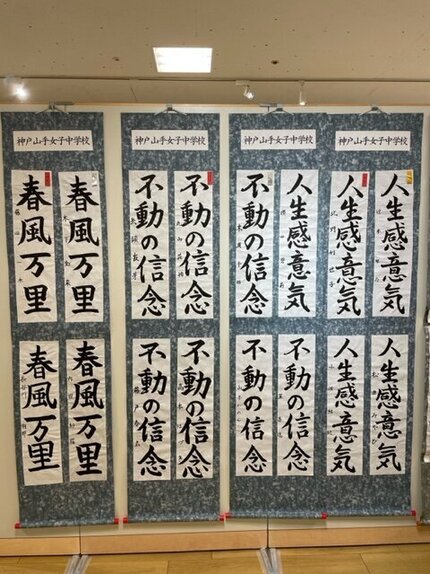 神戸山手女子中学校
春風万里
春風万里
春風万里
春風万里
神戸山手女子中学校
不動の信念
不動の信念
不動の信念
不動の信念
神戸山手女子中学校
不動の信念
人生感意気
不動の信念
不動の信念
神戸山手女子中学校
人生感意気
人生感意気
人生感意気
人生感意気